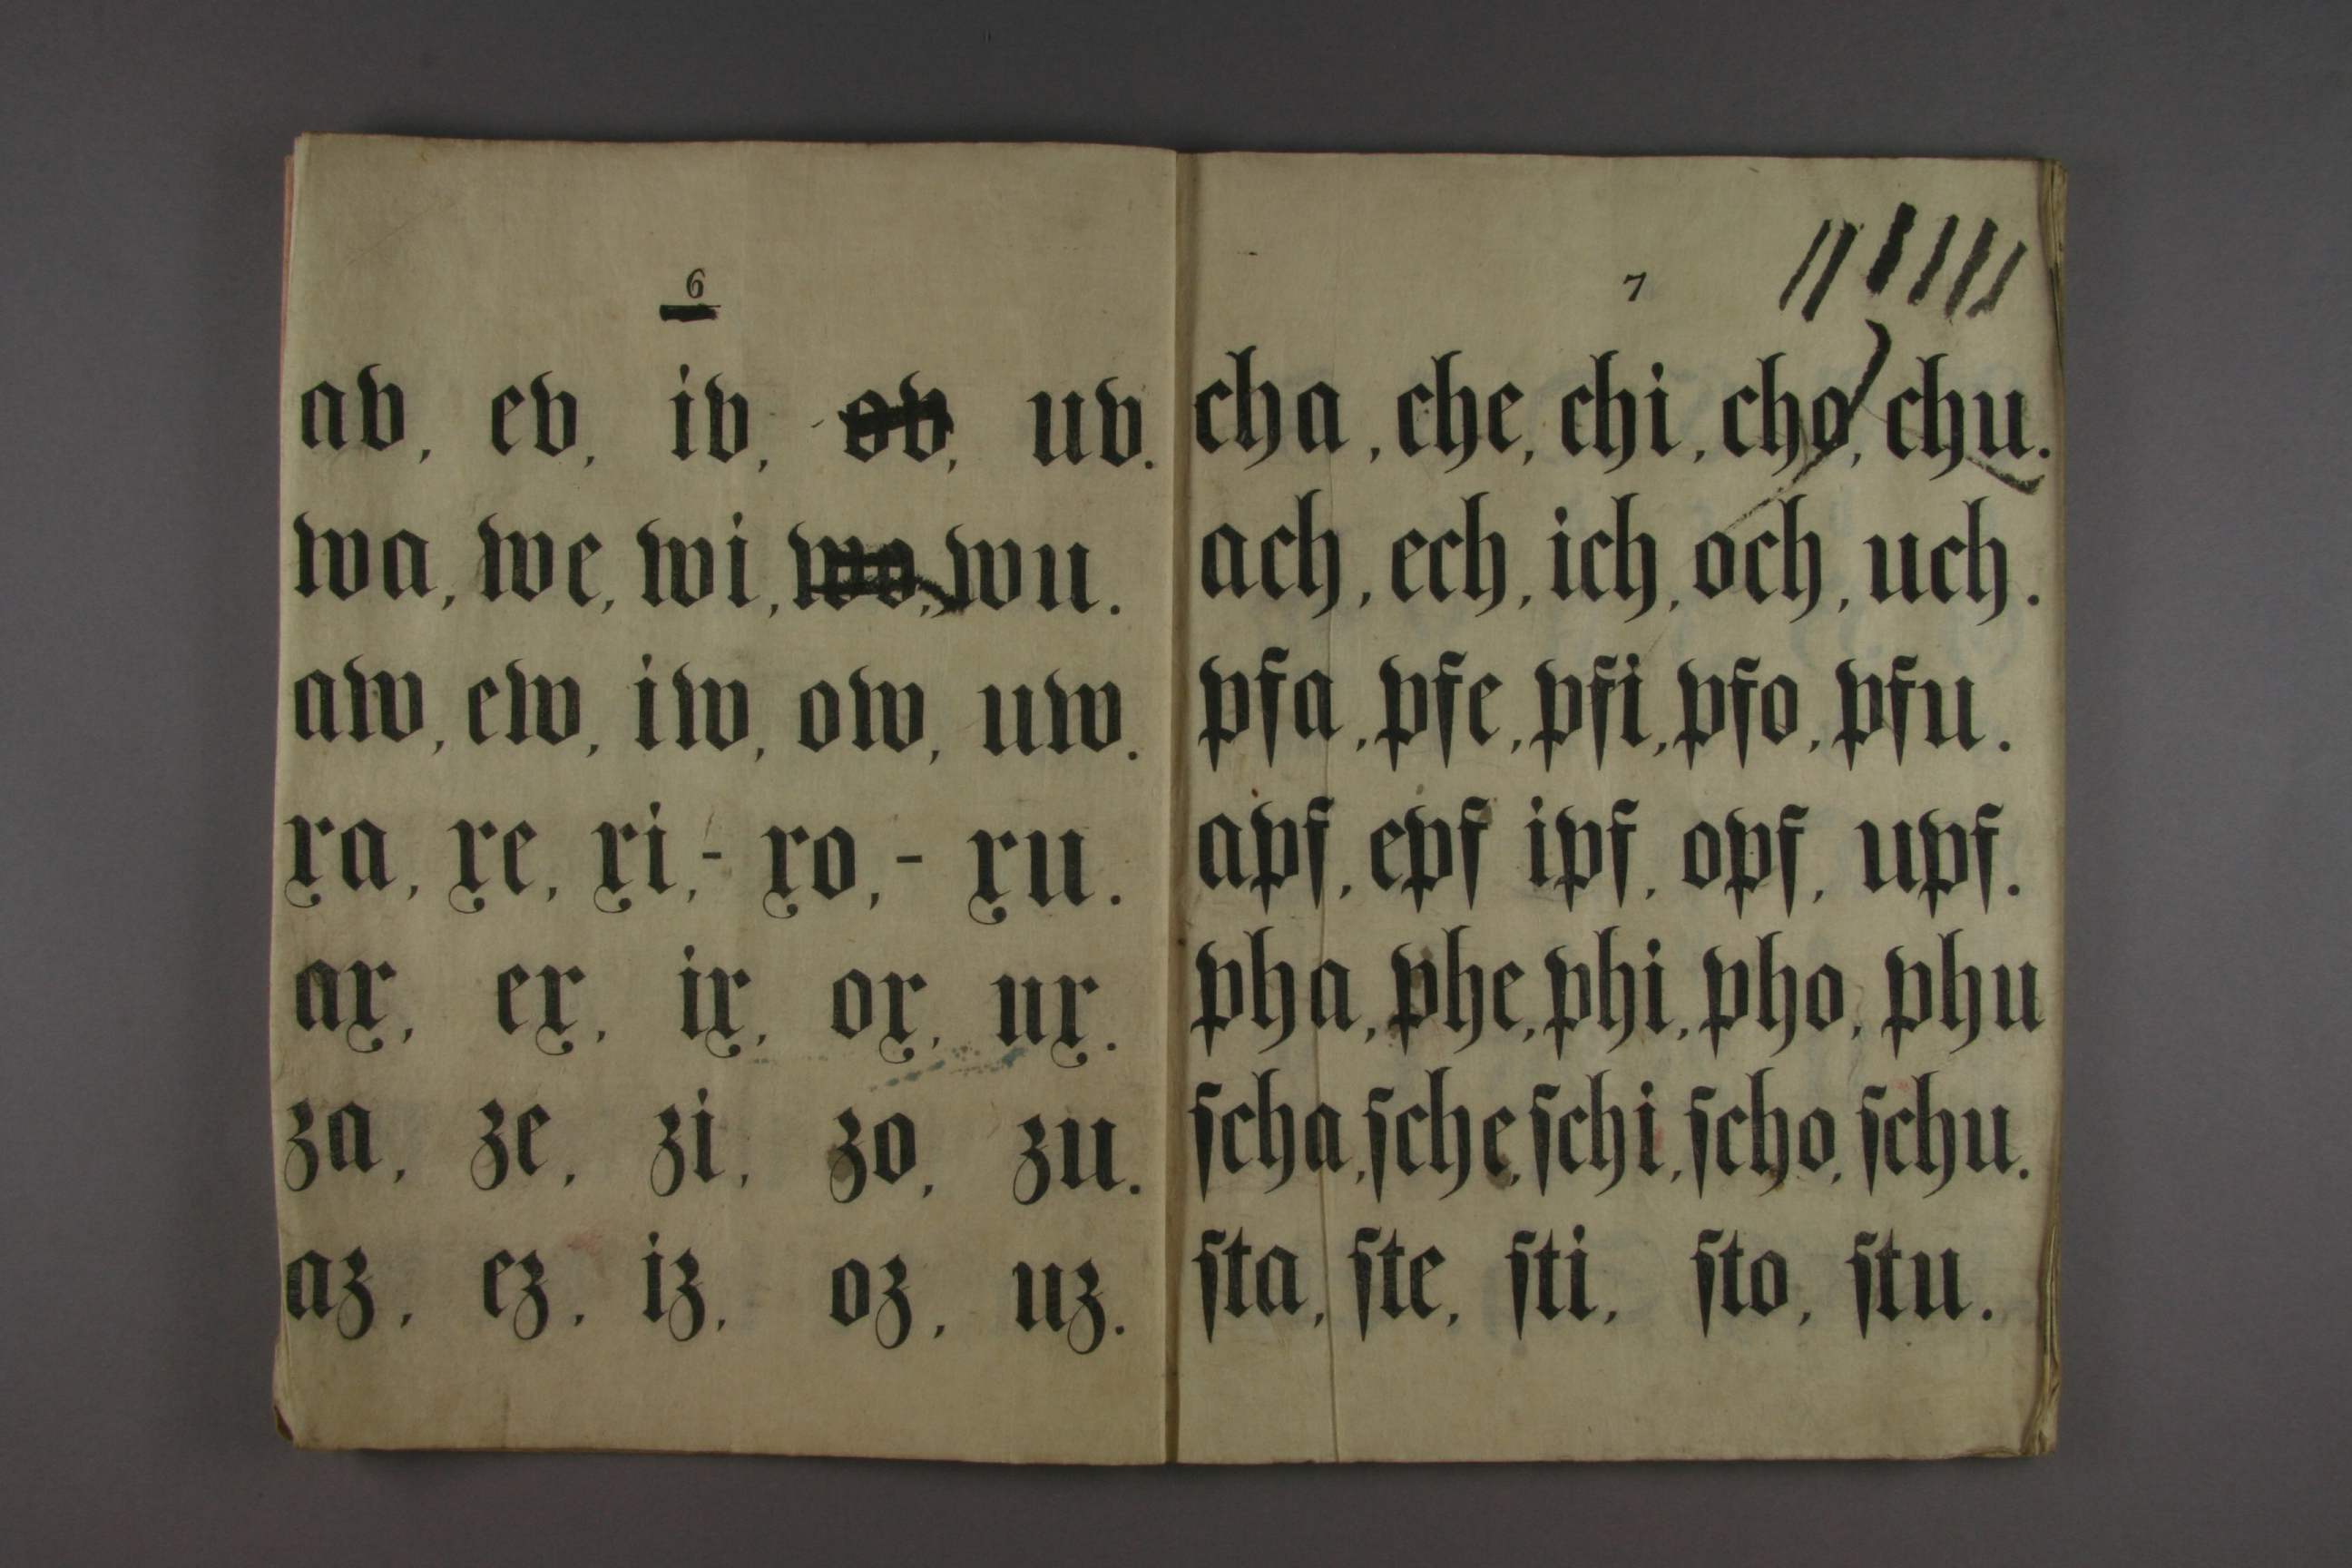 6
av, ev, iv, ov, uv.
wa, we, wi, wo, wu.
aw, ew, iw, ow, uw.
xa, xe, xi,- xo,- xu.
ax, ex, ix, ox, ux.
za, ze, zi, zo, zu.
az, ez, iz, oz, uz.
7
cha, che, chi, cho, chu.
ach, ech, ich, och, uch.
pfa, pfe, pfi, pfo, pfu.
apf, epf ipf, opf, upf.
pha, phe, phi, pho, phu
ſcha, ſche, ſchi, ſcho, ſchu.
ſta, ſte, ſti, ſto, ſtu.